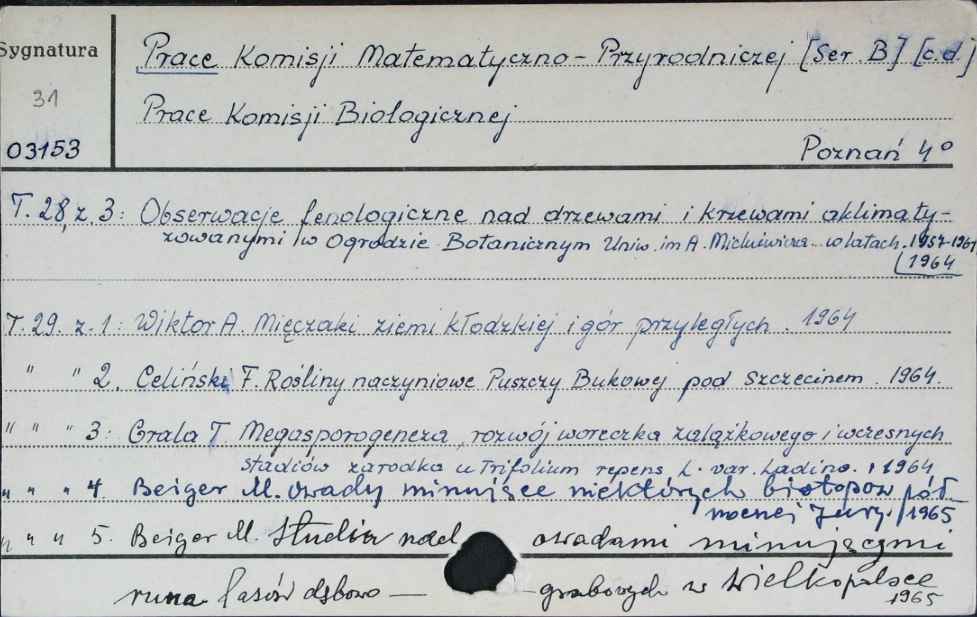 Sygnatura
Prace Komisji Matematyczno-Przyrodniczej [Ser. B] [c.d.]
31
Prace Komisji Biologicznej
03153
Poznań 4°
T. 28, z. 3: Obserwacje fenologiczne nad drzewami i krzewami aklimaty-
zowanymi w Ogrodzie Botanicznym Uniw. im A. Mickiewicza w latach 1957-1961
1964
T. 29. z. 1: Wiktor A. Mięczaki ziemi Kłodzkiej i gór przyległych. 1964
" " 2. Celiński F. Rośliny naczyniowe Puszczy Bukowej pod Szczecinem. 1964.
" " " 3: Grala T. Megasporogeneza, rozwój woreczka zalążkowego i wczesnych
stadiów zarodka u Trifolium repens L. var. Ladino. 1964
" " " 4 Beiger M. Owady minujące niektórych biotopow pół-
nocnej Jury. 1965
" " " 5. Beiger M. Studia nad owadami minującymi
runa lasów dębowo — — grabowych w Wielkopolsce
1965